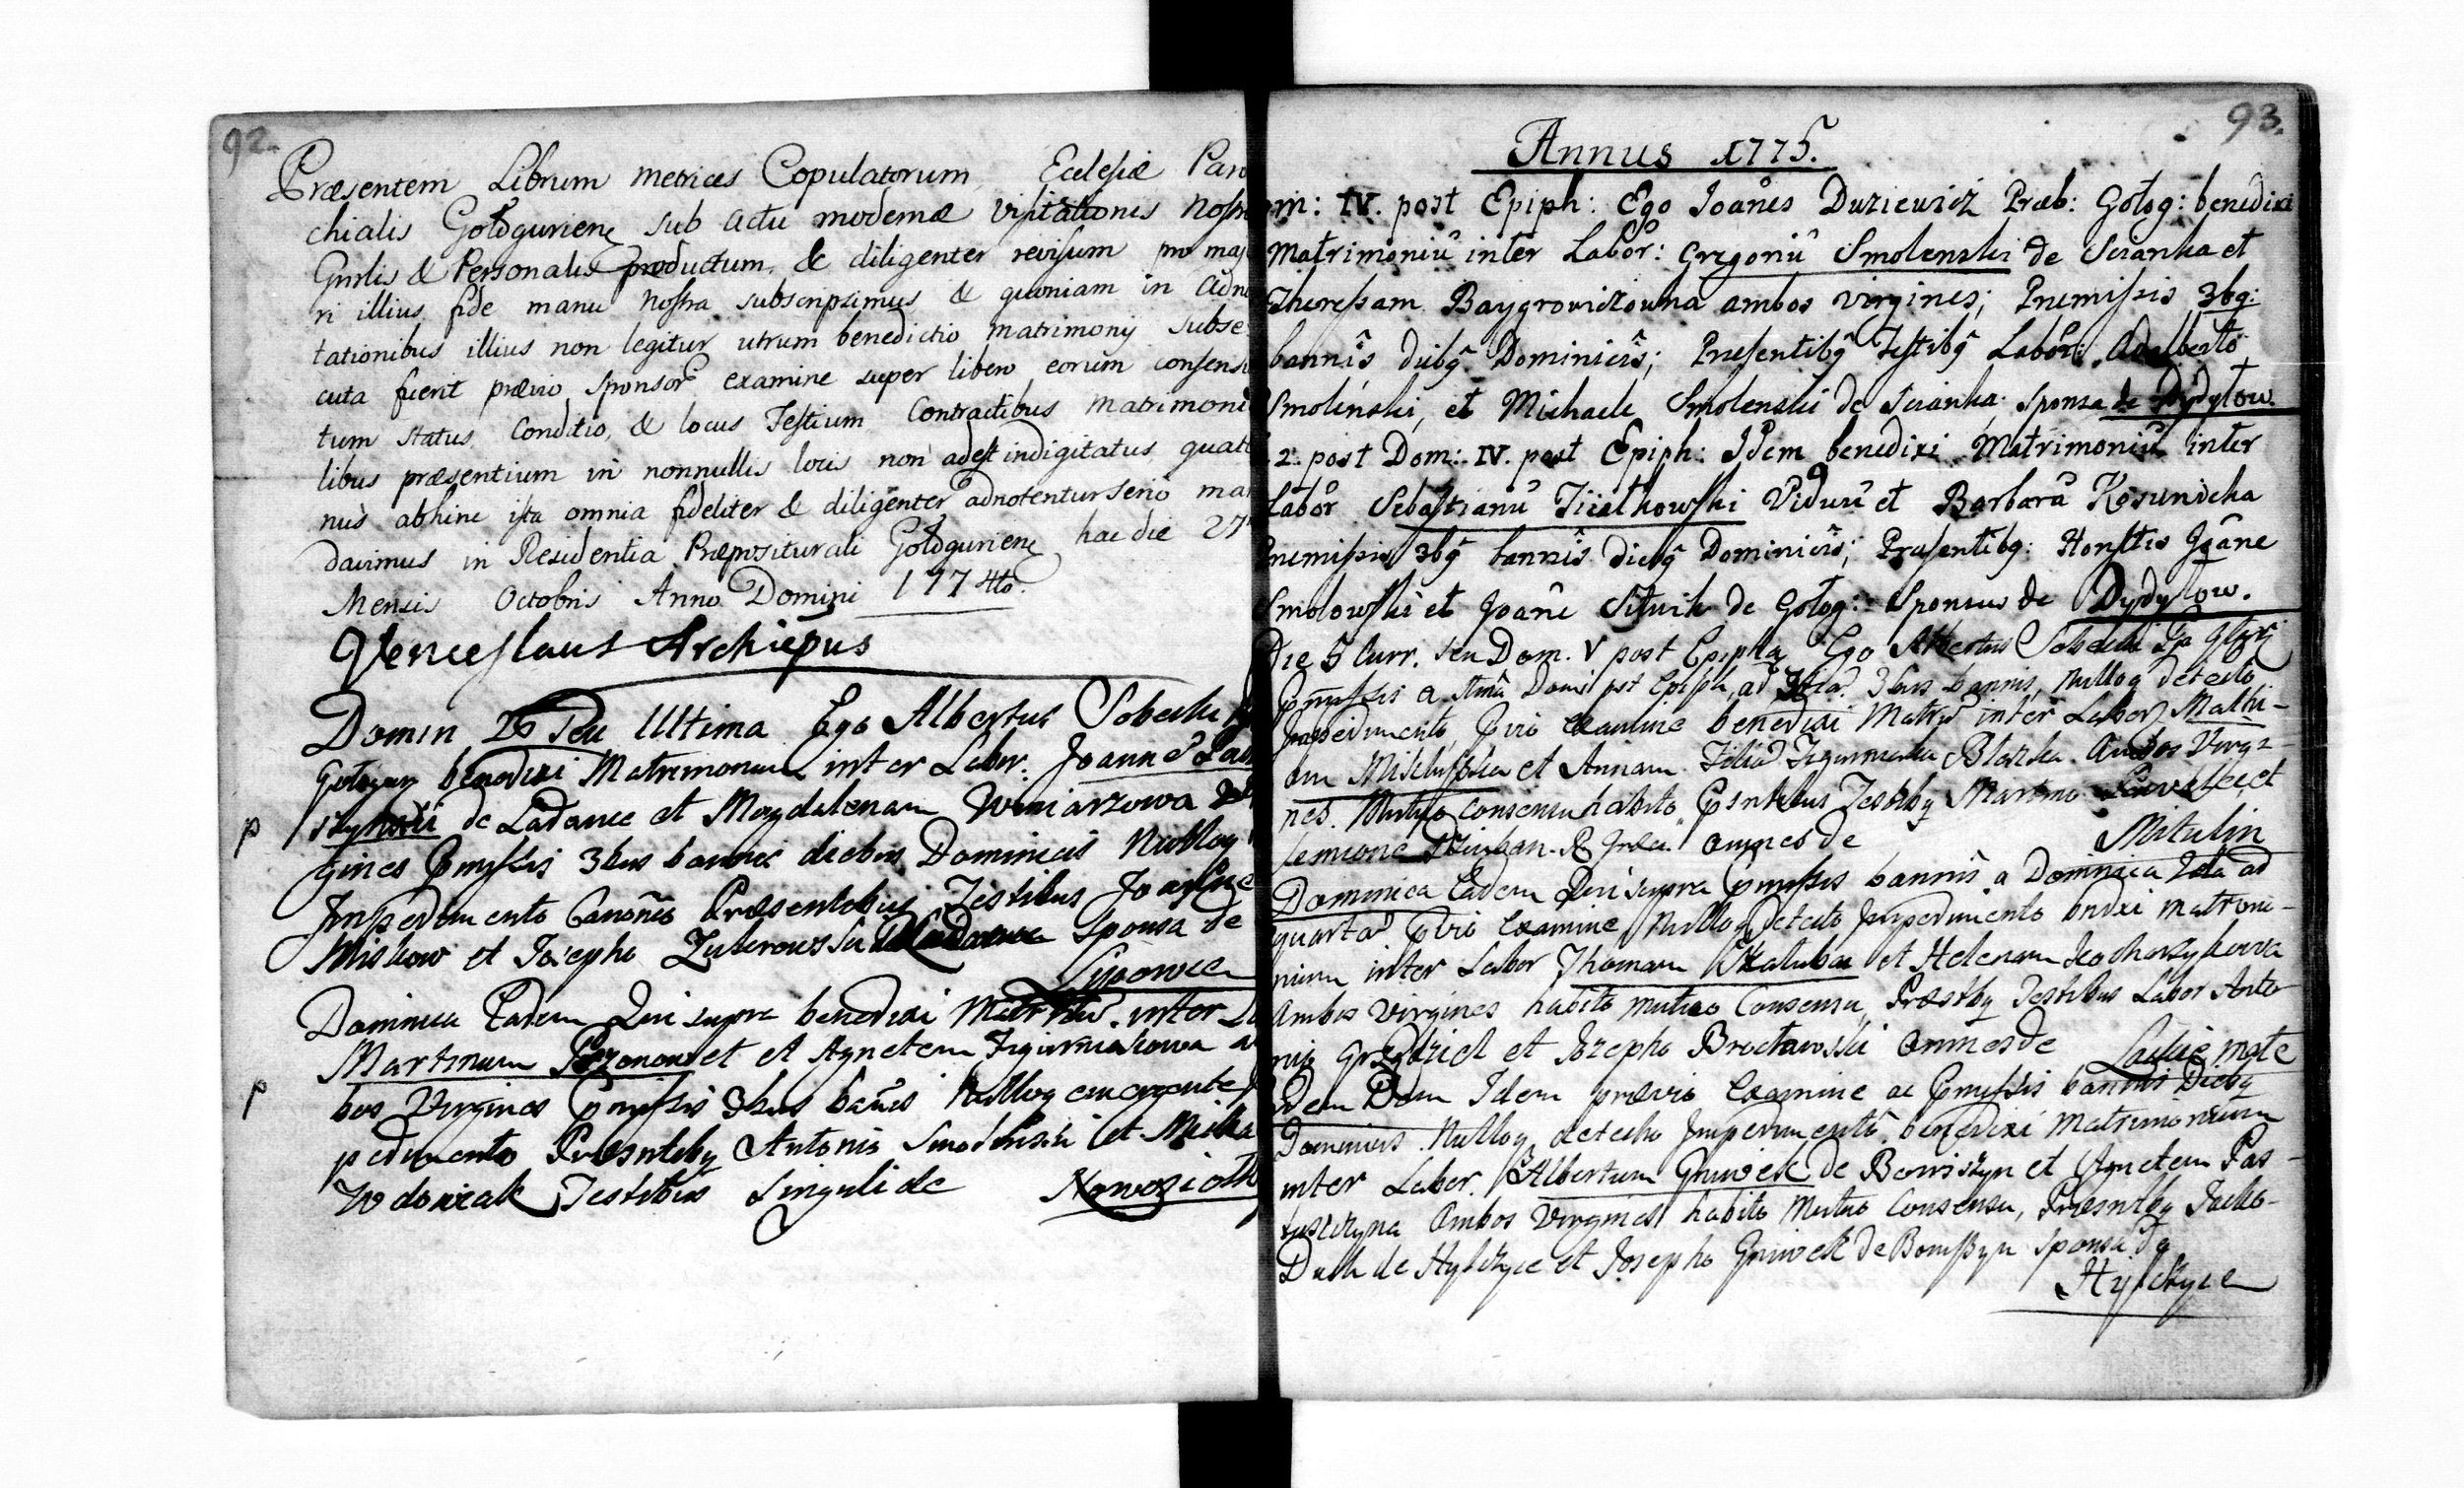 92.
Præsentem Librum metrices Copulatorum Ecclesiæ Paro
chialis Gołogurien sub actu modernæ visitationis Nostræ
Gnrlis & Personalis productum & diligenter revisum pro majo
ri illius fide manu nostra subscripsimus & quoniam in adno
tationibus illius non legitur utrum benedictio matrimonij subse
cuta fuerit prævio sponsor examine super libero eorum consensu
tum status Conditio, & locus Testium Contractibus Matrimonia
libus præsentium in nonnullis locis non adest indigitatus quate
nus abhinc ista omnia fideliter & diligenter adnotentur serio man
davimus in Residentia Præpositurali Gołogurien hac die 27
Mensis Octobris Anno Domini 1774to.
Venceslaus Archiepus
Domin 26 seu Ultima Ego Albertus Sobecki
Gologur benedixi Matrimonium inter Labor. Joannē
de Ladance et Magdalenam Winiarzowa
p
gines pmissis 3bus bannis diebus Dominicis Nulloq
Impedimento Canonēo Præsentibus Testibus Joañe
Miskow et Josepho Zuberowski Sponsa de
Lipowce
Dominica Eadem Qui supra benedixi Matrim. inter La
Martinum et Agnetem Figurniakowa am
p
bos Virgines pmissis 3bus bañis Nulloq emergente Im
pedimento Præsntibq Antonio Smolenski et Micha
Wdowiak Testibus Singuli de Nowosiołki
93.
Annus 1775.
om: IV. post Epiph: Ego Joānes Duziewicz Præb: Gołog: benedixi
Matrimoniū inter Labor: Gregoriū Smolenski de Scianka et
Theressam Baygrowiczowna ambos virgines; Premissis 3bq:
bannîs diebq Dominicîs; Presentibq Testibq Labōr: Adalberto
Smolinski, et Michaele Smolenski de Scianka. Sponsa de Dydyłow.
2. post Dom: IV. post Epiph: Idem benedixi Matrimoniū inter
Labōr Sebastianū Viduū et Barbarā Kosunicka
Premissis 3bq bannîs diebq Dominicîs; Præsentibq: Honestis Joāne
Smolowski et Joāne Sitnik de Gołog: Sponsus de Dydyłow.
Die 5 Curr. seu Dom. V post Epipha Ego Albertus Sobecki
pmissis a Domi pst Epiph, ad 3bus bannis, Nulloq detecto
Impedimento, pvio Examine benedixi Matrym inter Labor Mathi-
am et Annam Filiā Ambos Virgi-
nes. Mutuo consensu habito, Psntibus Testibq Martino et
Omnes de Mitulin
Dominica Eadem Qui supra pmissis bannis a Dominica 2da ad
quartā pvio Examine Nulloq Detecto Impedimento bndxi matrimo-
nium inter Labor Thomam Skaluba et Helenam
Ambos Virgines habito mutuo Consensu, Præsntbq Testibus Labor Anto
nio et Josepho Brocławski Omnes de Lackie małe
Eadem Dom Idem prævio Examine ac pmissis bannis Diebq
Dominicis Nulloq detecto Impedimento benedixi Matrimonium
inter Labor. Albertum Gniwek de Boniszyn et Agnetem Pas-
tuszczyna Ambos Virgines habito Mutuo Consensu, Præsntbq
Duch de Hylczyce et Josepho Gniwek de Boniszyn Sponsa de
Hylczyce